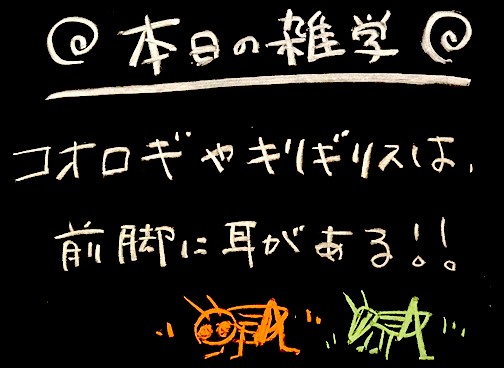 本日の雑学
コオロギやキリギリスは、
前脚に耳がある!!